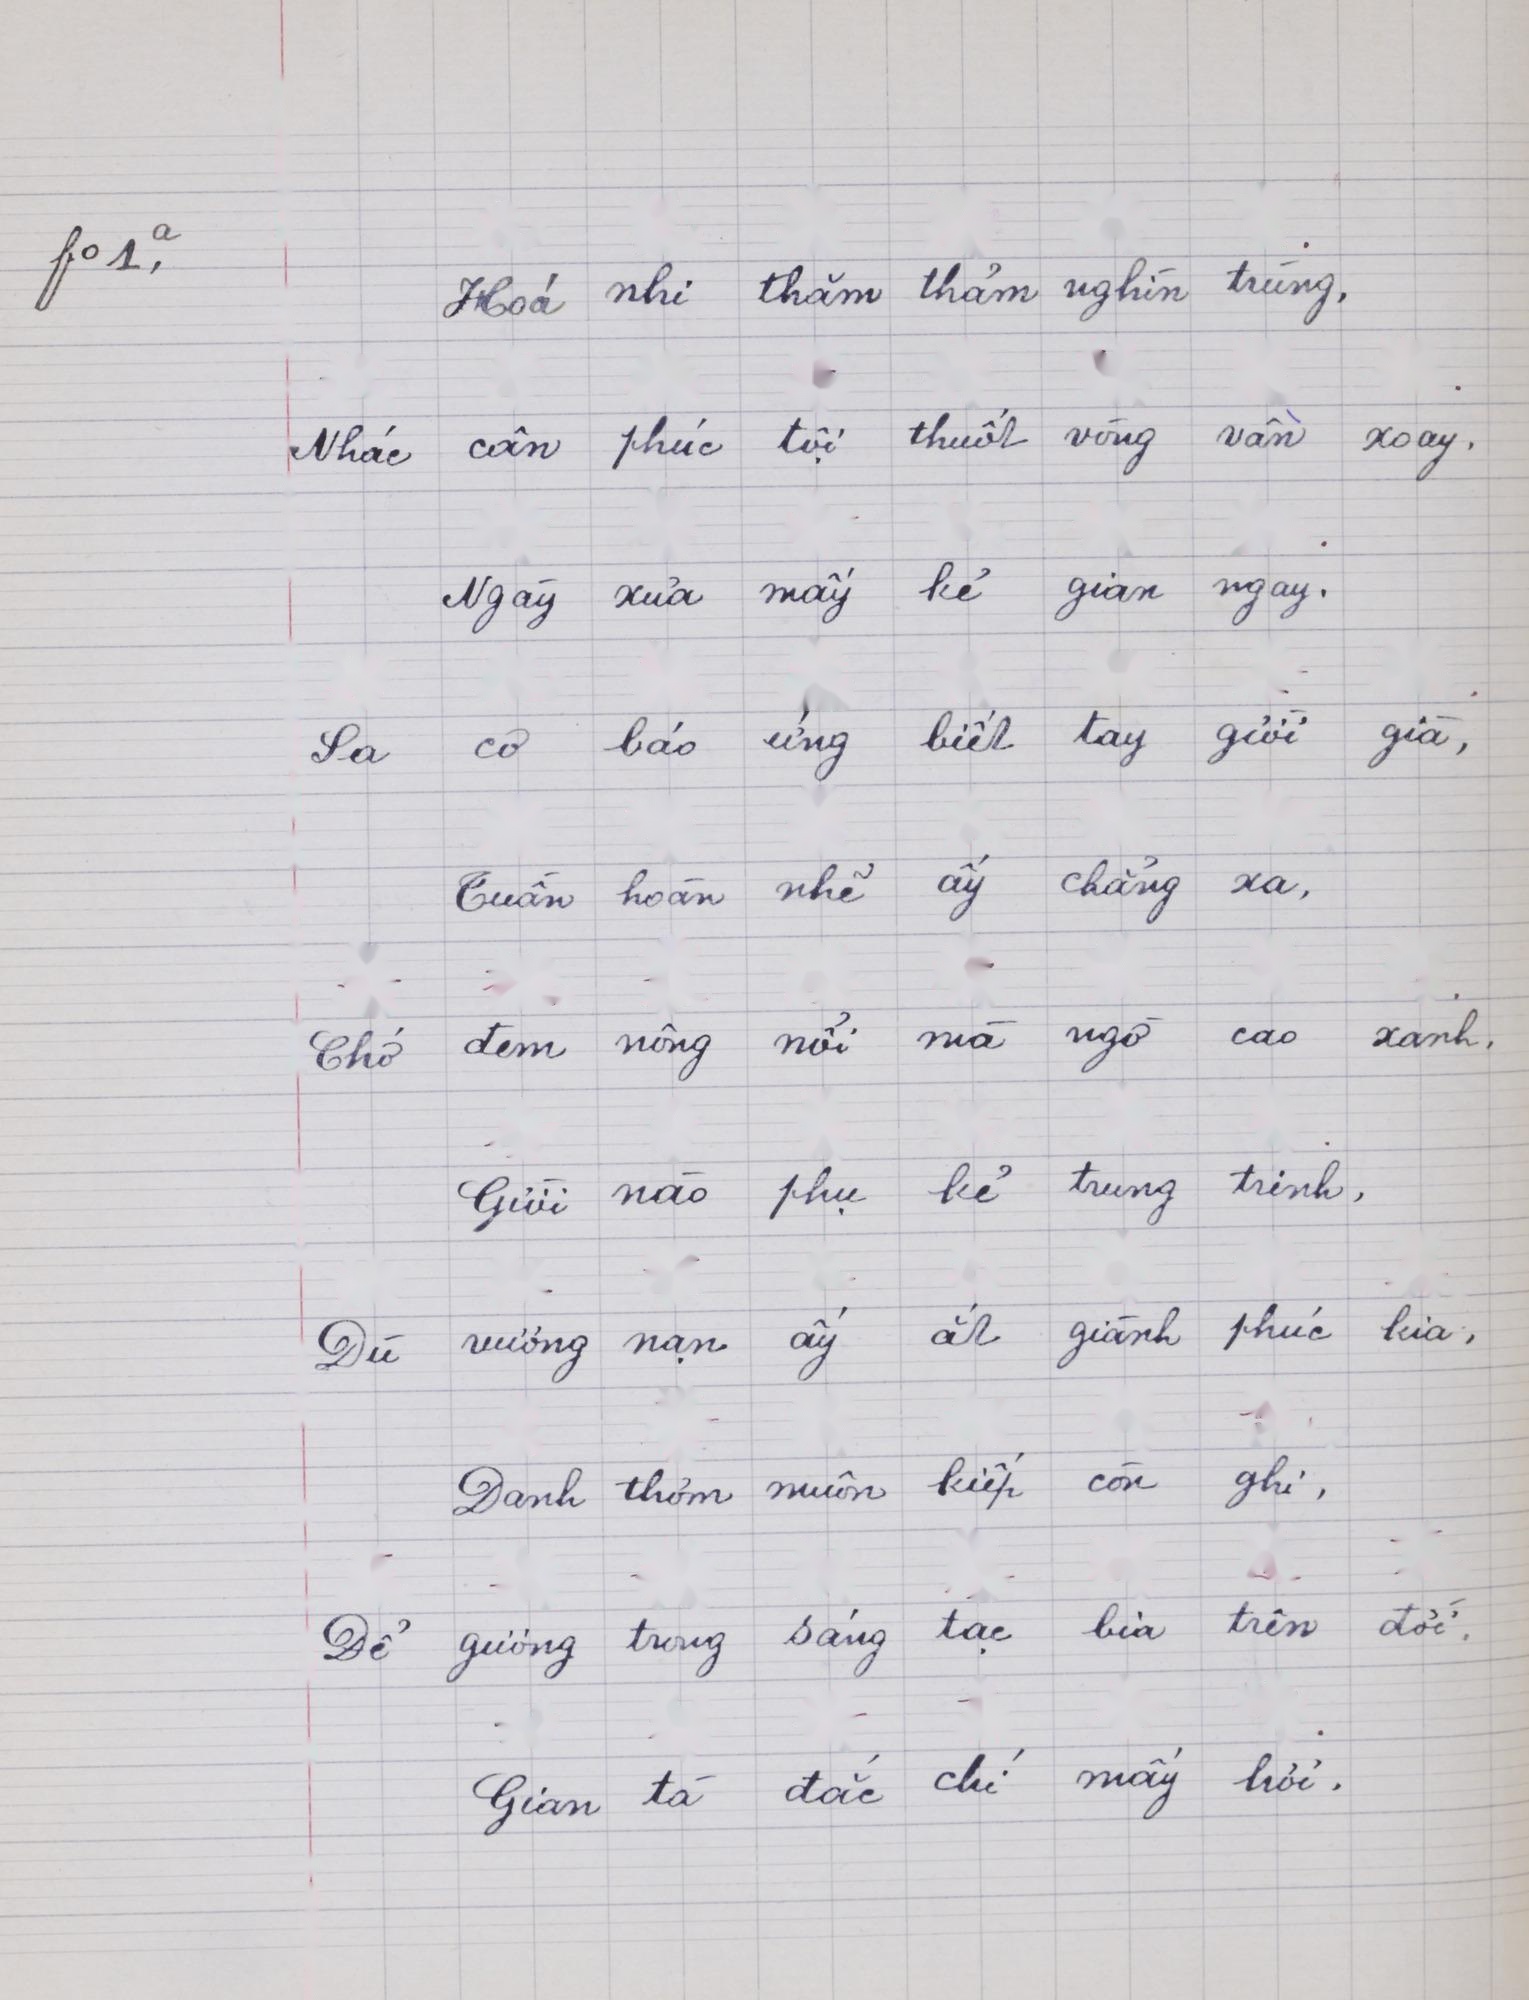 fº 1.a
Hoá nhi thăm thẳm nghìn trùng,
Nhác cân phúc tội thuốt vòng vần xoay.
Ngày xưa mấy kẻ gian ngay.
Sa cơ báo ứng biết tay giời già,
Tuần hoàn nhẽ ấy chẳng xa,
Chớ đem nông nổi mà ngờ cao xanh.
Giời nào phụ kẻ trung trinh,
Dù vương nạn ấy ắt giành phúc kia,
Danh thơm muôn kiếp còn ghi,
Để gương trong sáng tạc bia trên đời.
Gian tà đắc chí mấy hơi.